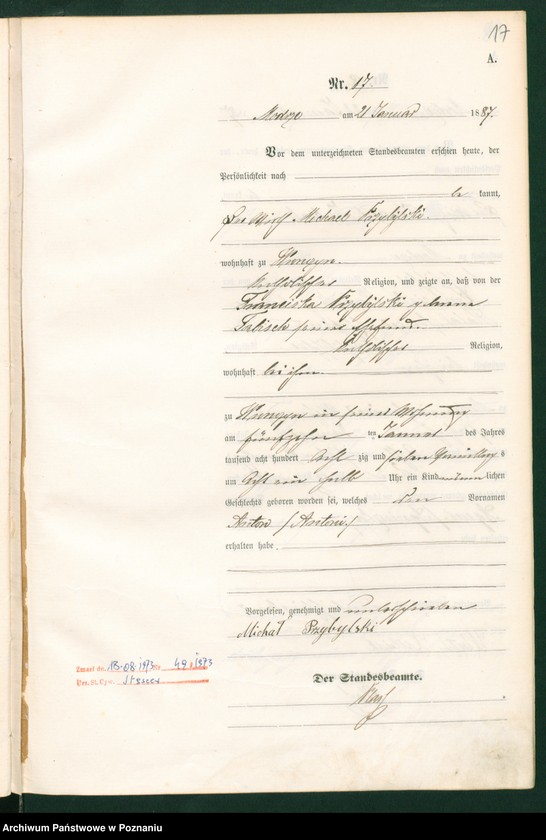 17
A.
Nr. 17.
am 21 Januar 1887.
Vor dem unterzeichneten Standesbeamten erschien heute, der
Persönlichkeit nach
be kannt,
der Wirth Michael Przybylski.
wohnhaft zu
katholischer Religion, und zeigte an, daß von der
Franciska Przybylski geborene
seiner Ehefrau.
katholischer Religion,
wohnhaft bei ihm.
zu in seiner Wohnung
am fünfzehn ten Januar des Jahres
tausend acht hundert acht zig und sieben Vormittags
um acht ein halb Uhr ein Kind männlichen
Geschlechts geboren worden sei, welches den Vornamen
Anton (Antoni)
erhalten habe.
Vorgelesen, genehmigt und unterschrieben
Michał Przybylski
Der Standesbeamte.
Zmarł dn. 18-08-1973 Nr 49/1973
Urz. St. Cyw.
Archiwum Państwowe w Poznaniu